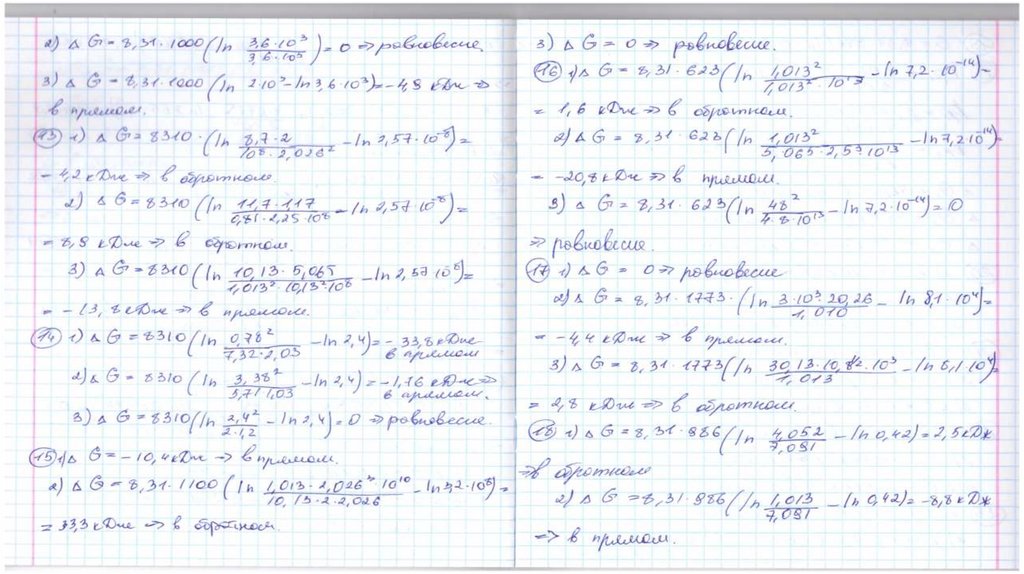 2) Δ G = 8,31 · 1000 (ln 3,6·10³/3,6·10³) = 0 => равновесие.
3) Δ G = 8,31 · 1000 (ln 2·10³ - ln 3,6·10³) = -4,9 кДж =>
в прямом.
13) 1) Δ G = 8310 · (ln 8,7·2/10⁸·2,026² - ln 2,57·10⁻⁸) =
- 4,2 кДж => в обратном.
2) Δ G = 8310 (ln 11,7·117/0,81·2,25·10⁸ - ln 2,57·10⁻⁸) =
= 8,9 кДж => в обратном.
3) Δ G = 8310 (ln 10,13·5,065/1,013²·10,13²10⁸ - ln 2,57 10⁸) =
= -13,8 кДж => в прямом.
14) 1) Δ G = 8310 (ln 0,78²/7,32·2,03 - ln 2,4) = - 33,8 кДж
в прямом
2) Δ G = 8310 (ln 3,38²/5,71·1,03 - ln 2,4) = -1,16 кДж =>
в прямом.
3) Δ G = 8310 (ln 2,4²/2·1,2 - ln 2,4) = 0 => равновесие.
15) 1) Δ G = -10,4 кДж => в прямом.
2) Δ G = 8,31 · 1100 (ln 1,013·2,026³·10¹⁰/10,13·2·2,026 - ln 3,2·10⁸) =
= 33,3 кДж => в обратном.
3) Δ G = 0 => равновесие.
16) 1) Δ G = 8,31 · 623 (ln 1,013²/1,013²·10¹³ - ln 7,2·10⁻¹⁴) -
= 1,6 кДж => в обратном.
2) Δ G = 8,31 · 623 (ln 1,013²/5,065·2,53·10¹³ - ln 7,2·10¹⁴) -
= -20,8 кДж => в прямом.
3) Δ G = 8,31 · 623 (ln 48²/4·8·10¹³ - ln 7,2·10⁻¹⁴) = 0
=> равновесие.
17) 1) Δ G = 0 => равновесие
2) Δ G = 8,31 · 1773 · (ln 3·10³·20,26/1,010 - ln 8,1·10⁴) =
= -4,4 кДж => в прямом.
3) Δ G = 8,31 · 1773 (ln 30,13·10,82·10³/1,013 - ln 8,1·10⁴) =
= 2,8 кДж => в обратном.
18) 1) Δ G = 8,31 · 986 (ln 4,052/7,091 - ln 0,42) = 2,5 кДж
=> в обратном
2) Δ G = 8,31 · 986 (ln 1,013/7,091 - ln 0,42) = -8,8 кДж
=> в прямом.